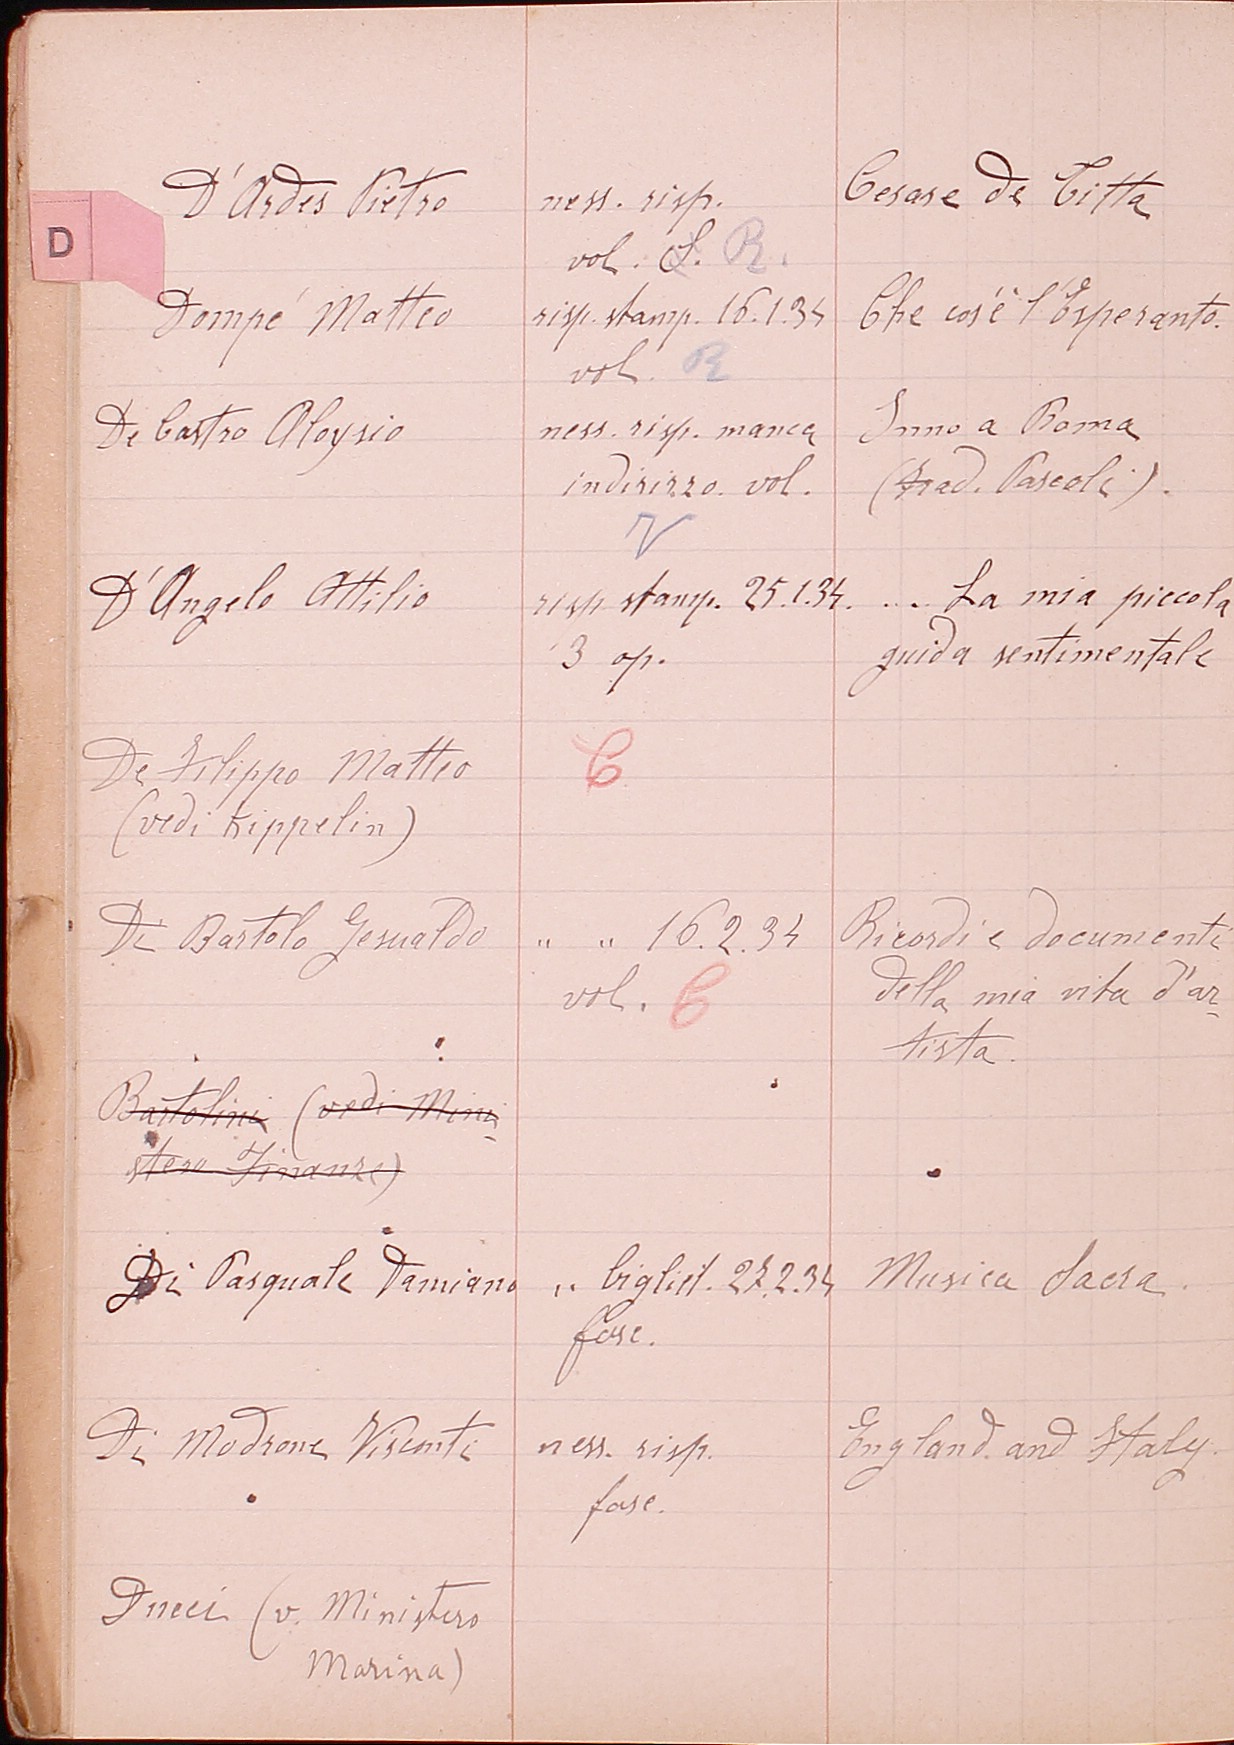 D'Ardes Pietro ness. risp. Cesare de Titta
D
vol. S. R.
Dompé Matteo risp. stamp. 16.1.34 Che cos'è l'Esperanto.
vol. R
De Castro Aloysio ness. risp. manca Inno a Roma
indirizzo. vol. (trad. Pascoli).
V
D'Angelo Attilio risp. stamp. 25.1.34. ... La mia piccola
3 op. guida sentimentale
De Filippo Matteo C
(vedi Kippelin)
Di Bartolo Gesualdo " " 16.2.34 Ricordi e documenti
vol. C della mia vita d'ar-
tista.
Bartolini (vedi Mini-
stero Finanze)
Di Pasquale Damiano " bigliet. 22.2.34 Musica Sacra.
fasc.
Di Modrone Visconti ness. risp. England and Italy.
fasc.
Ducci (v. Ministero
Marina)